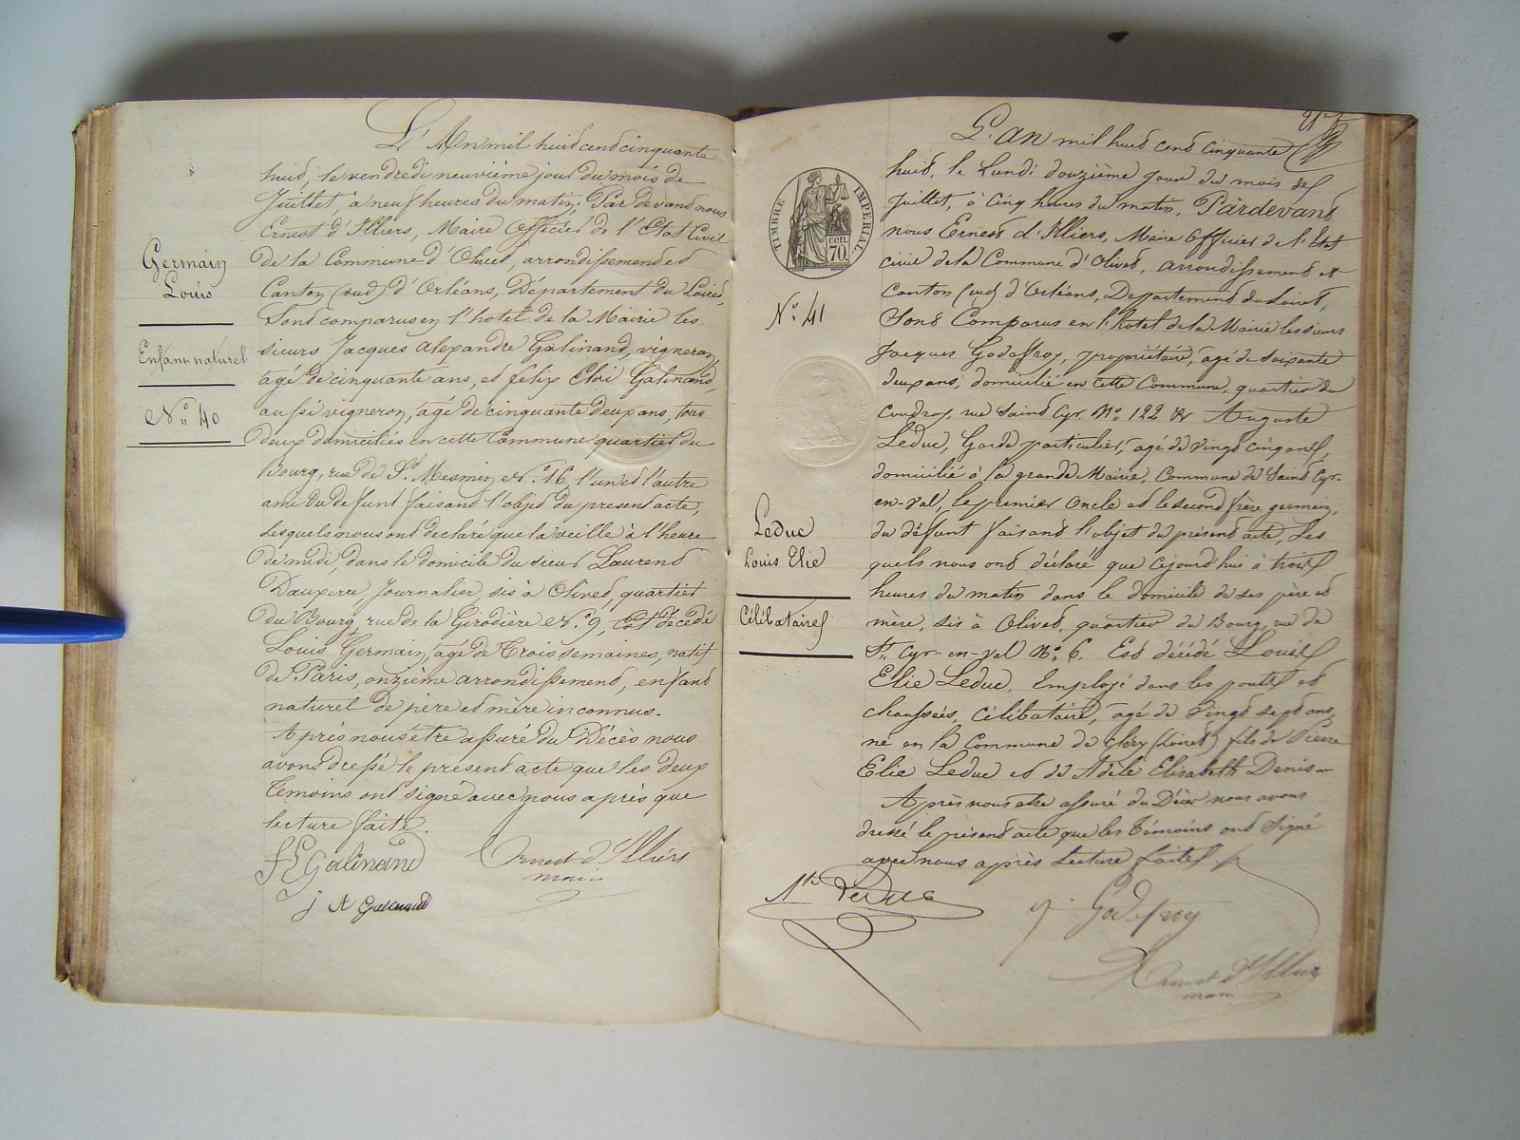 Germain
Louis
Enfant naturel
N.º 40
L'An mil huit cent cinquante
huit, le vendredi neuvième jour du mois de
Juillet, à neuf heures du matin, Par devant nous
Ernest d'Illiers, Maire Officier de l'Etat Civil
de la Commune d'Olivet, arrondissement et
Canton (sud) d'Orléans, Département du Loiret,
Sont comparus en l'hotel de la Mairie les
sieurs Jacques Alexandre Galinand, vigneron,
agé de cinquante ans, et felix Eloi Galinand,
aussi vigneron, agé de cinquante deux ans, tous
deux domiciliés en cette Commune quartier du
Bourg, rue de St. Mesmin, N.º 16, l'un et l'autre
amis du défunt faisant l'objet du present acte,
lesquels nous ont déclaré que la veille à l'heure
de midi, dans le domicile du sieur Laurent
Dauxerre Journalier, sis à Olivet, quartier
du Bourg, rue de la Girodière N.º 9, Est décédé
Louis Germain, agé de Trois semaines, natif
de Paris, onzième arrondissement, enfant
naturel de père et mère inconnus.
Après nous être assuré du Décès nous
avons dressé le present acte que les deux
Témoins ont signé avec nous après que
lecture faite.
F E Galinand
Ernest d'Illiers
maire
j A Galinand
TIMBRE IMPERIAL
CEN.
70.
N.º 41
Leduc
Louis Elie
Célibataire
L'An mil huit cent cinquante
huit, le Lundi douzième jour du mois de
Juillet, à cinq heures du matin, Pardevant
nous Ernest d'Illiers, Maire Officier de l'Etat
civil de la Commune d'Olivet, arrondissement et
Canton (sud) d'Orléans, Departement du Loiret,
Sont Comparus en l'hotel de la Mairie les sieurs
Jacques Godeffroy, propriétaire, agé de soixante
deux ans, domicilié en cette Commune, quartier du
Coudray, rue Saint Cyr, N.º 122 et Auguste
Leduc, Garde particulier, agé de vingt cinq ans,
domicilié à la grande Maire, Commune de Saint Cyr-
en-val, le premier Oncle et le second frère germain,
du défunt faisant l'objet du présent acte, Les
quels nous ont déclaré que cejourd'hui à trois
heures du matin dans le domicile de ses père et
mère, sis à Olivet, quartier du Bourg, rue de
St. Cyr-en-val N.º 6. Est décédé Louis
Elie Leduc, Employé dans les ponts et
chaussées, Célibataire, agé de Vingt sept ans,
né en la Commune de Cléry (Loiret) fils de Pierre
Elie Leduc et de Adèle Elisabeth Denis
Après nous être assuré du Décès nous avons
dressé le présent acte que les Témoins ont signé
avec nous après Lecture faite
Ate Leduc
J. Godefroy
Ernest d'Illiers
maire